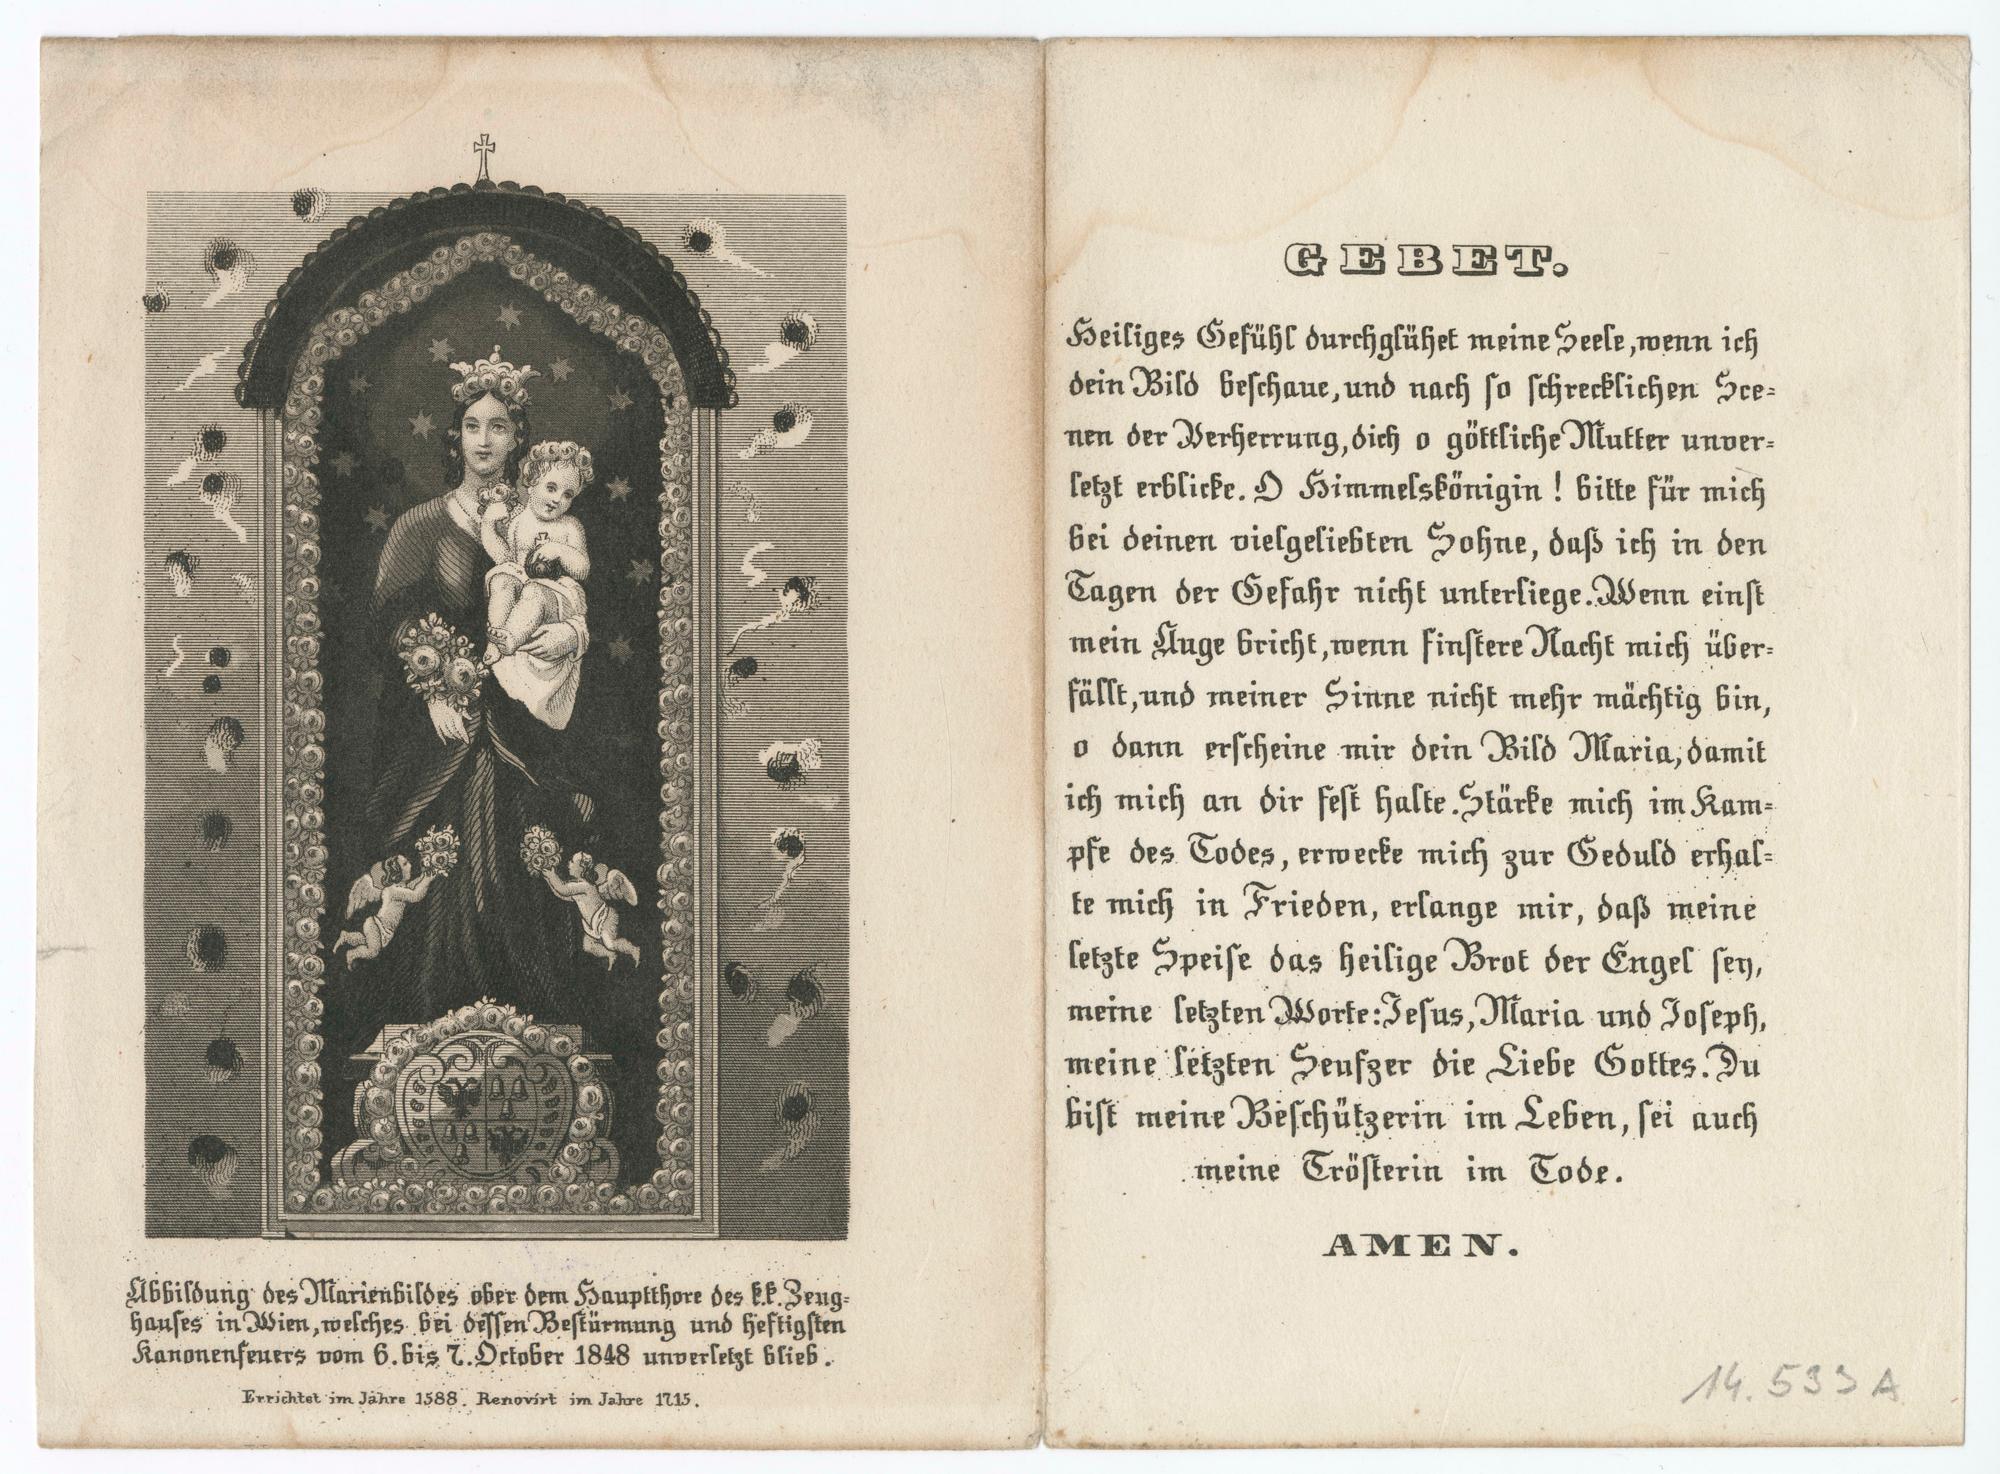 Abbildung des Marienbildes ober dem Hauptthore des k.k. Zeug=
hauses in Wien, welches bei dessen Bestürmung und heftigsten
Kanonenfeuers vom 6. bis 7. October 1848 unverletzt blieb.
Errichtet im Jahre 1588. Renovirt im Jahre 1715.
GEBET.
Heiliges Gefühl durchglühet meine Seele, wenn ich
dein Bild beschaue, und nach so schrecklichen Sce=
nen der Verherrung, dich o göttliche Mutter unver=
letzt erblicke. O Himmelskönigin! bitte für mich
bei deinen vielgeliebten Sohne, daß ich in den
Tagen der Gefahr nicht unterliege. Wenn einst
mein Auge bricht, wenn finstere Nacht mich über=
fällt, und meiner Sinne nicht mehr mächtig bin,
o dann erscheine mir dein Bild Maria, damit
ich mich an dir fest halte. Stärke mich im Kam=
pfe des Todes, erwecke mich zur Geduld erhal=
te mich in Frieden, erlange mir, daß meine
letzte Speise das heilige Brot der Engel sey,
meine letzten Worte: Jesus, Maria und Joseph,
meine letzten Seufzer die Liebe Gottes. Du
bist meine Beschützerin im Leben, sei auch
meine Trösterin im Tode.
AMEN.
14.533 A